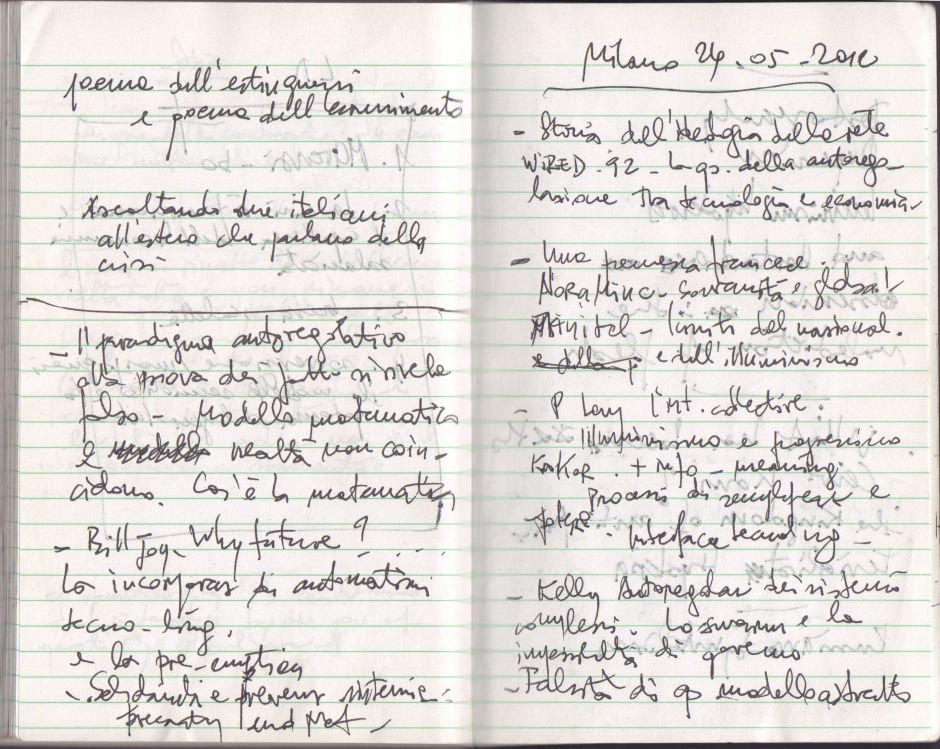 poema dell'estinguersi
e poema dell'esaurimento
Ascoltando due italiani
all'estero che parlano della
crisi
- Il paradigma autoregolativo
alla prova dei fatti si rivela
falso - Modello matematico
e realtà non coin-
cidono. Cos'è la matematica
- Bill Joy - Why future ?
La automatismi
tecno-ling.
e la pre-emption
- Solidarietà e
Milano 24.05.2012
- Storia dell'ideologia della rete
WIRED . 92 - La della autorego-
lazione tra tecnologia e economia -
- Una francese.
Nora Minc - sovranità e global
Minitel - limiti del nazional.
e dell'illuminismo
- P Levy l'int. collective.
Illuminismo e
+ info - meaning.
Processi di e
Interface -
- Kelly Autoregolaz dei sistemi
complessi. Lo swarm e la
impossibilità di governo
- Falsità di modello astratto